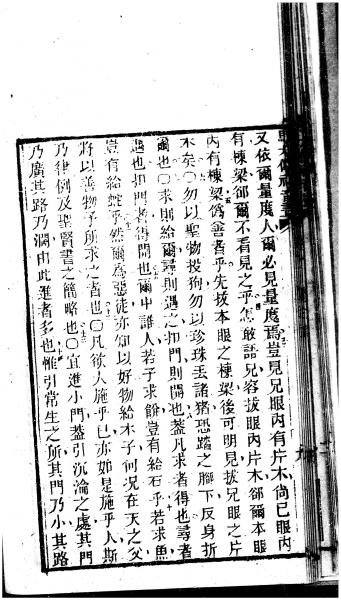 又依爾量度人爾必見量度焉豈見兄眼內有片木尚己眼內
有棟梁卻爾不看見之乎怎敢語兄容拔眼內片木卻爾本眼
內有棟梁偽善者乎先拔本眼之棟梁後可明見拔兄眼之片
木矣〇勿以聖物投狗勿以珍珠丟諸猪恐踏之腳下反身折
爾也〇求則給爾尋則遇之扣門則開也蓋凡求者得也尋者
遇也扣門者得開也爾中誰人若子求餅豈有給石乎若求魚
豈有給蛇乎然爾為惡徒亦知以好物給本子何况在天之父
將以善物予所求之者也〇凡欲人施乎己亦如是施乎人斯
乃律例及聖賢書之簡略也〇宜進小門蓋引沉淪之處其門
乃廣其路乃濶由此進者多也惟引常生之所其門乃小其路